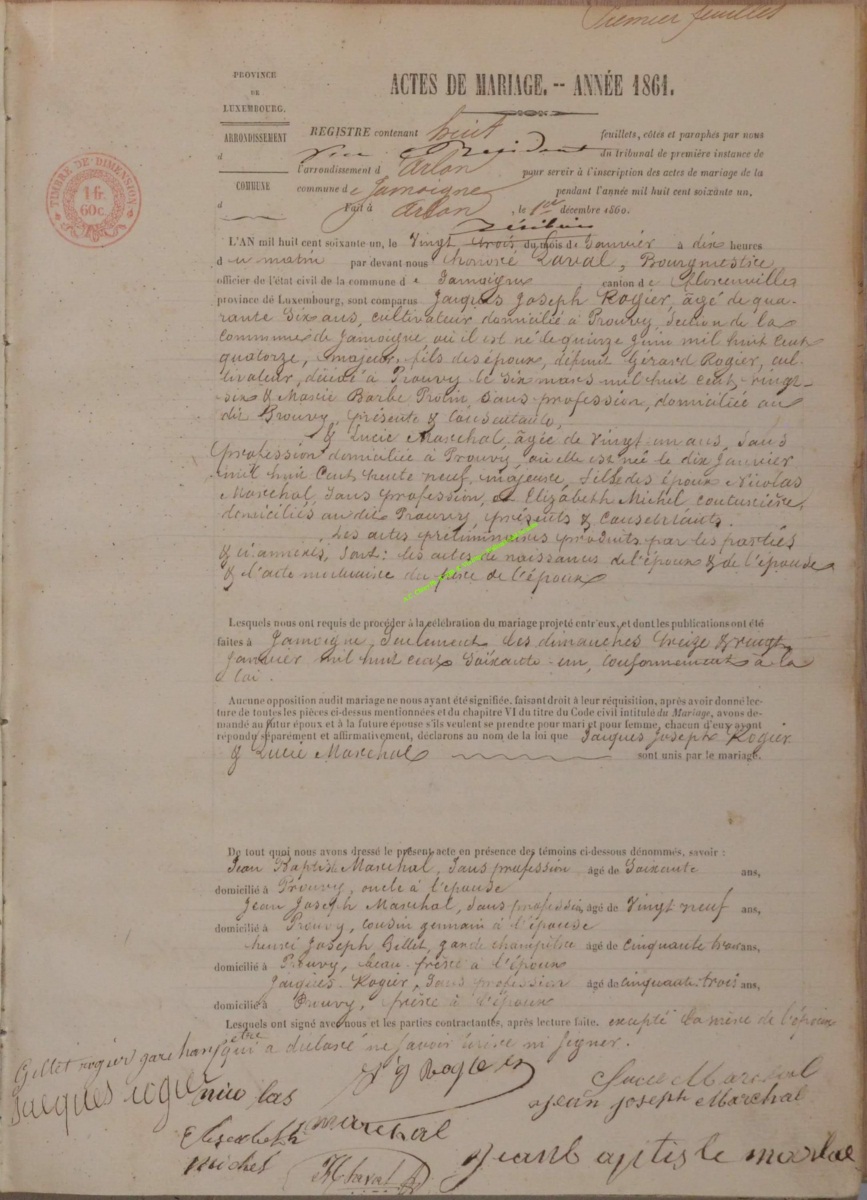 Premier feuillet
PROVINCE
DE
LUXEMBOURG.
ARRONDISSEMENT
d
COMMUNE
d
TIMBRE DE DIMENSION
1 f.
60c.
ACTES DE MARIAGE. -- ANNÉE 1861.
REGISTRE contenant huit feuillets, côtés et paraphés par nous
Vice Président du tribunal de première instance de
l'arrondissement d'Arlon pour servir à l'inscription des actes de mariage de la
commune de Jamoigne pendant l'année mil huit cent soixante un.
Fait à Arlon, le 1er décembre 1860.
L'AN mil huit cent soixante un, le Vingt trois du mois de Janvier à dix heures
du matin par devant nous Honoré Laval, Bourgmestre
officier de l'état civil de la commune de Jamoigne canton de Florenville
province de Luxembourg, sont comparus Jacques Joseph Rogier, âgé de qua-
rante Six ans, cultivateur domicilié à Prouvy, Section de la
Commune de Jamoigne où il est né le quinze Juin mil huit cent
quatorze, majeur, fils des époux, défunt Gérard Rogier, cul-
tivateur, décédé à Prouvy le Six mars mil huit cent vingt-
six & Marie Barbe sans profession, domiciliée au
dit Prouvy, présente & Consentante,
& Lucie Marechal, agée de Vingt-un ans, Sans
profession domiciliée à Prouvy, où elle est née le dix Janvier
mil huit Cent trente neuf, majeure, fille des époux Nicolas
Marechal, Sans profession, & Elizabeth Michel, couturière,
domiciliés au dit Prouvy, présents & Consentants.
Les actes préliminaires produits par les parties
& ci annexés, sont: les actes de naissances de l'époux & de l'épouse
& l'acte mortuaire du père de l'époux
Lesquels nous ont requis de procéder à la célébration du mariage projeté entr'eux, et dont les publications ont été
faites à Jamoigne, Seulement les dimanches treize & vingt
Janvier mil huit cent Soixante-un, Conformément à la
loi.
Aucune opposition audit mariage ne nous ayant été signifiée, faisant droit à leur réquisition, après avoir donné lec-
ture de toutes les pièces ci-dessus mentionnées et du chapitre VI du titre du Code civil intitulé du Mariage, avons de-
mandé au futur époux et à la future épouse s'ils veulent se prendre pour mari et pour femme, chacun d'eux ayant
répondu séparément et affirmativement, déclarons au nom de la loi que Jacques Joseph Rogier
& Lucie Marechal sont unis par le mariage.
De tout quoi nous avons dressé le présent acte en présence des témoins ci-dessous dénommés, savoir :
Jean Baptiste Marechal, Sans profession âgé de Soixante ans,
domicilié à Prouvy, oncle à l'épouse
Jean Joseph Marechal, Sans profession, âgé de Vingt neuf ans,
domicilié à Prouvy, Cousin germain à l'épouse
Henri Joseph Gillet, garde champêtre âgé de Cinquante trois ans,
domicilié à Prouvy, beau frère à l'époux
Jacques Rogier, Sans profession âgé de Cinquante trois ans,
domicilié à Prouvy, frère à l'époux
Lesquels ont signé avec nous et les parties contractantes, après lecture faite. excepté la mère de l'époux
qui a déclaré ne savoir écrire ni signer.
Gillet rogier
Jacques rogier
nicolas
marechal
Lucie Marechal
Jean Joseph Marechal
Elisabeth
michel
H Laval
Jean Baptiste